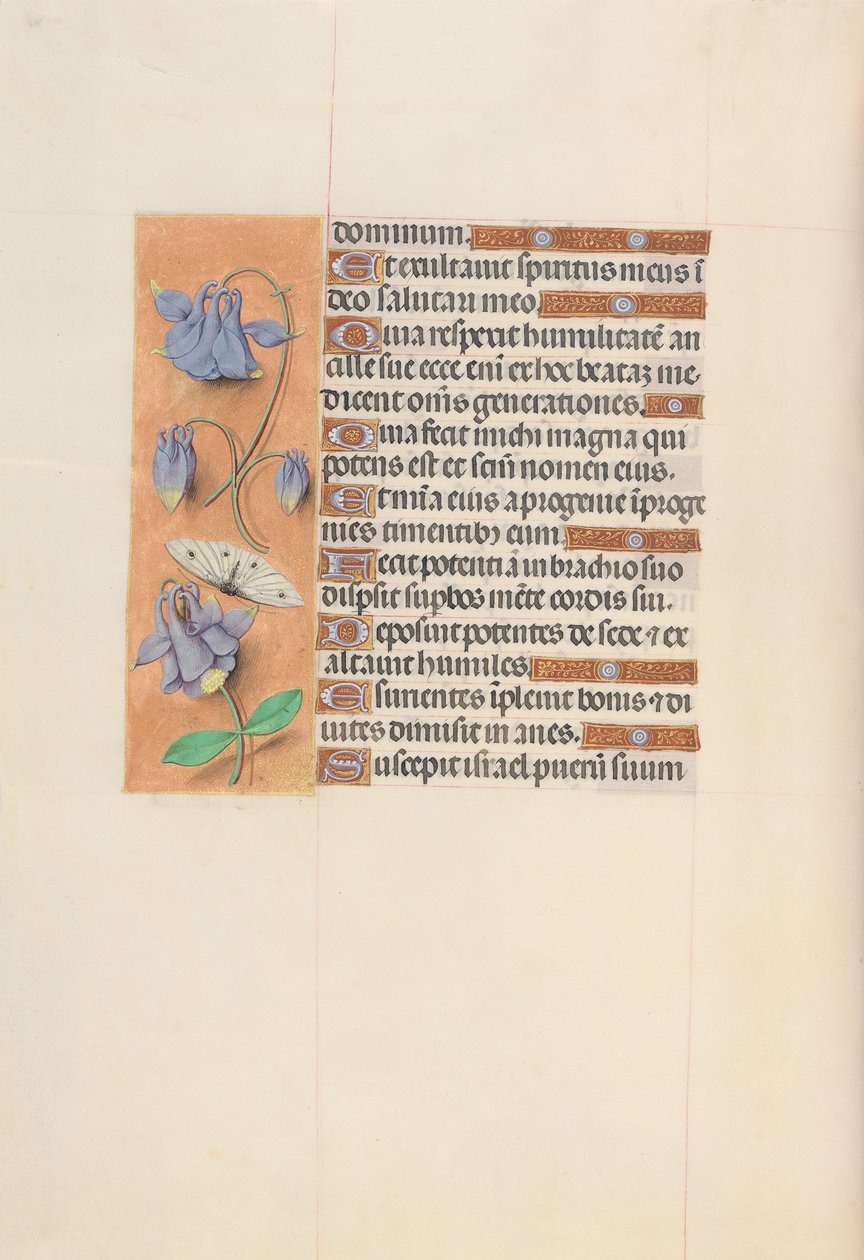 dominum.
Et exultauit spiritus meus ī
deo salutari meo
Quia respexit humilitatē an
cille sue ecce enī ex hoc beataꝫ me
dicent om̄s generationes.
Quia fecit michi magna qui
potens est et sc̄m̄ nomen eius.
Et mīa eius a progenie ī proge
nies timentibꝫ eum.
Fecit potentiā in brachio suo
disp̄sit suꝑbos mēte cordis sui.
Deposuit potentes de sede ⁊ ex
altauit humiles
Esurientes īpleuit bonis ⁊ di
uites dimisit in anes.
Suscepit israel puerū suum